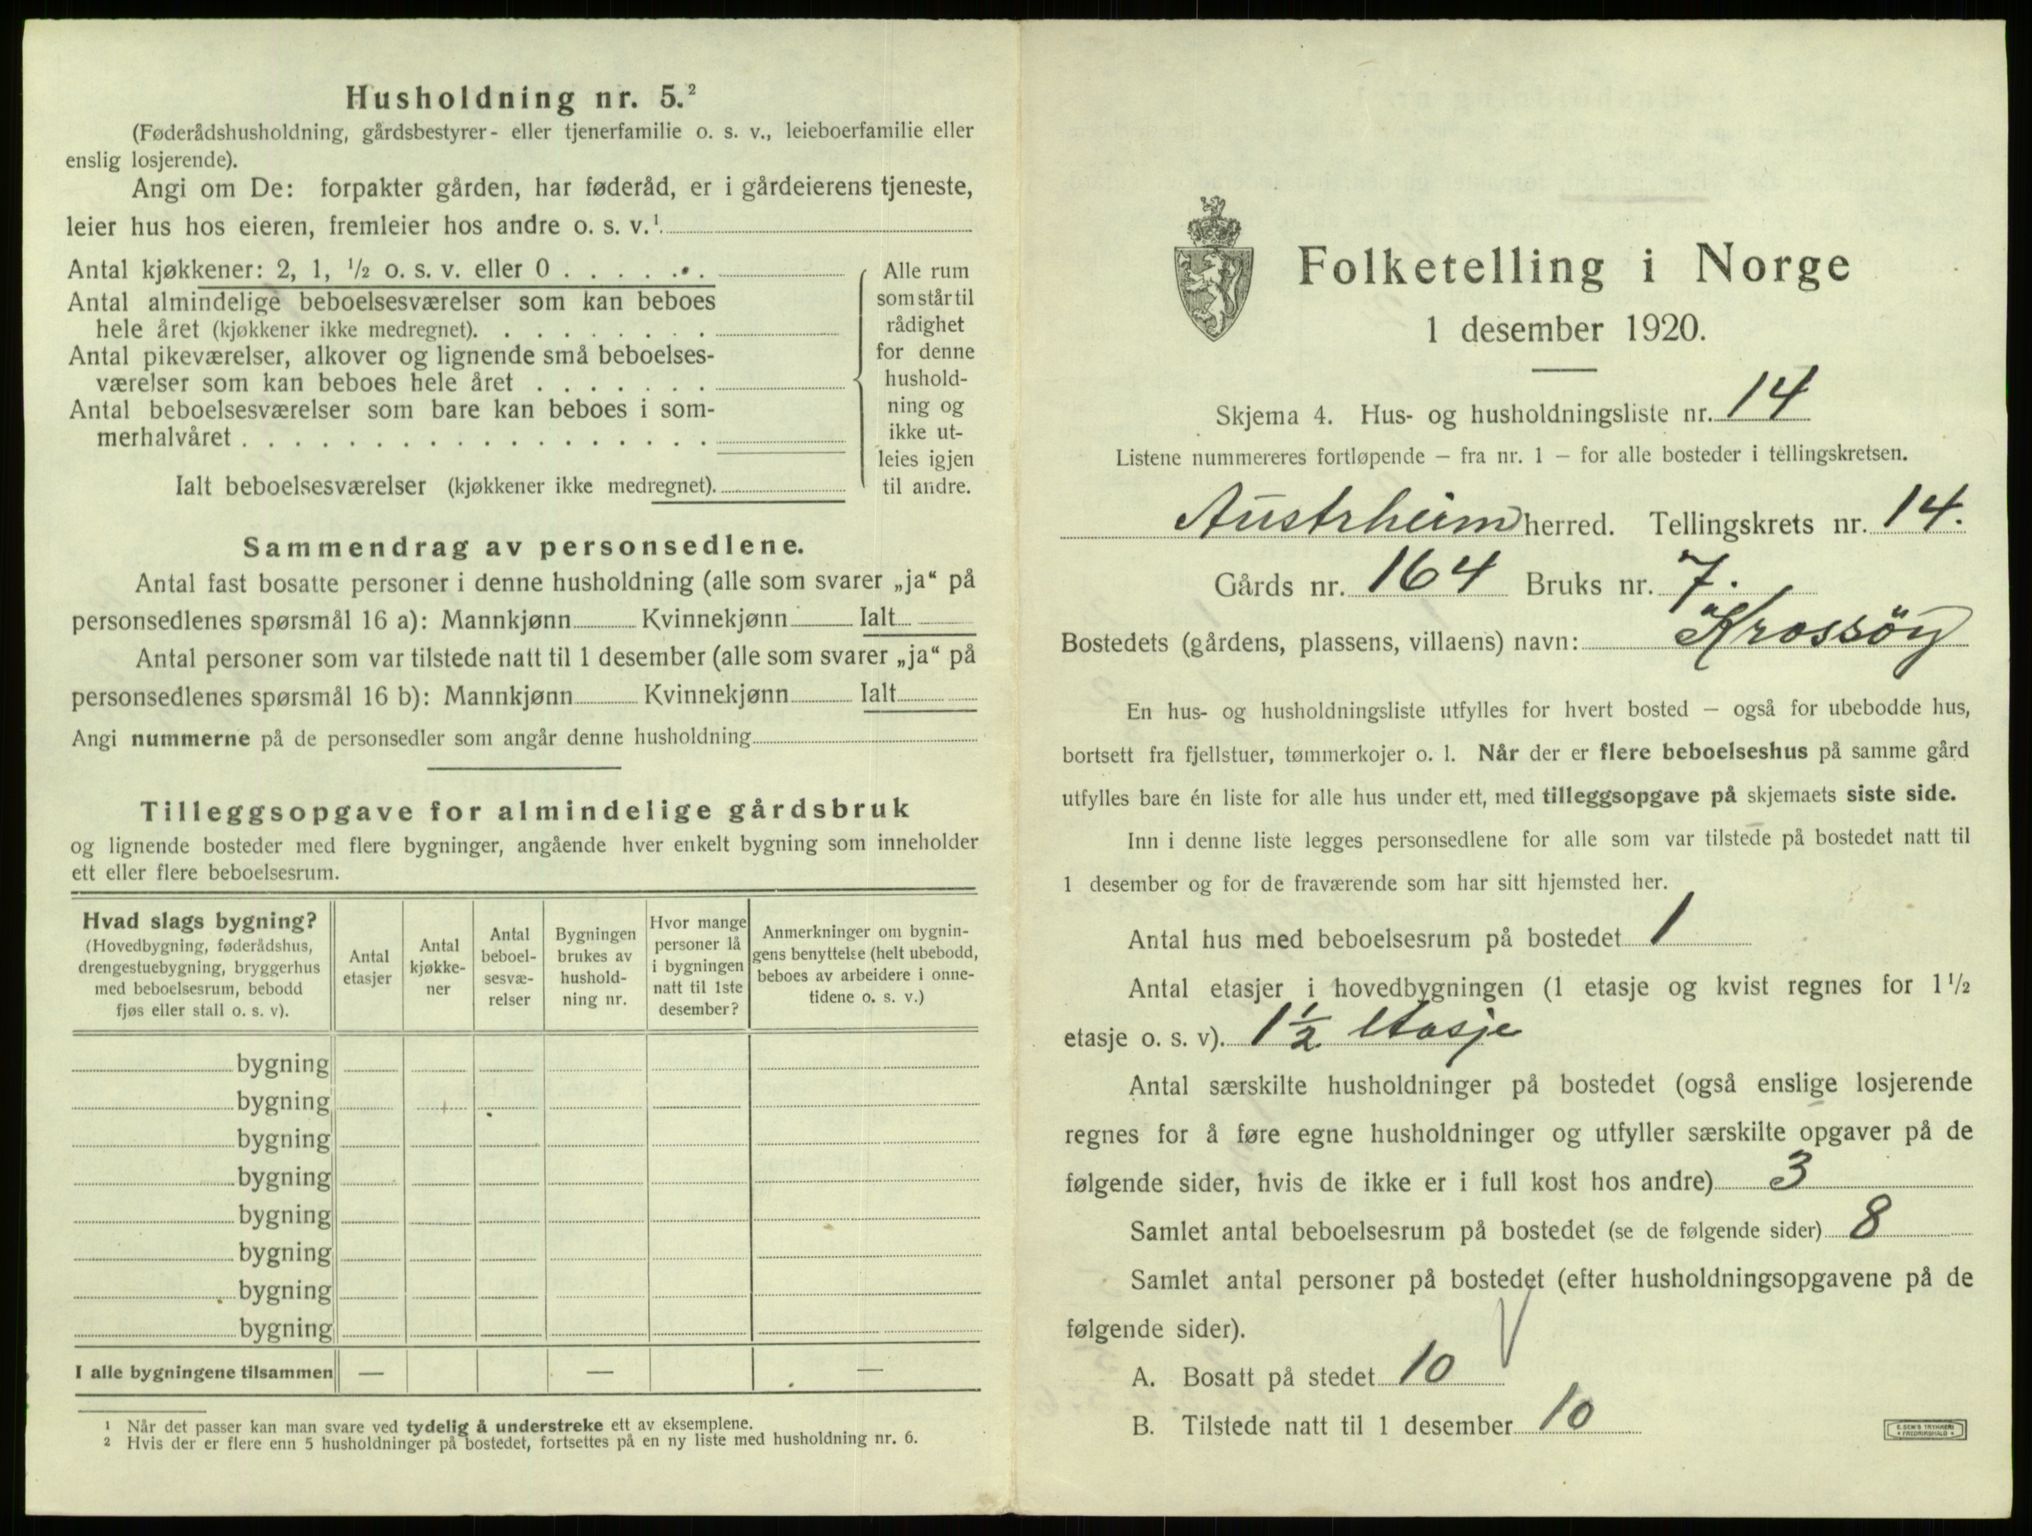 Husholdning nr. 5.²
(Føderådshusholdning, gårdsbestyrer- eller tjenerfamilie o. s. v., leieboerfamilie eller
enslig losjerende).
Angi om De: forpakter gården, har føderåd, er i gårdeierens tjeneste,
leier hus hos eieren, fremleier hos andre o. s. v.¹
Antal kjøkkener: 2, 1, ½ o. s. v. eller 0 . . . . . .
Antal almindelige beboelsesværelser som kan beboes
hele året (kjøkkener ikke medregnet). . . . . . . . .
Antal pikeværelser, alkover og lignende små beboelses-
værelser som kan beboes hele året . . . . . . .
Antal beboelsesværelser som bare kan beboes i som-
merhalvåret . . . . . . . . . . . . . . . . . .
Ialt beboelsesværelser (kjøkkener ikke medregnet).
Alle rum
som står til
rådighet
for denne
hushold-
ning og
ikke ut-
leies igjen
til andre.
Sammendrag av personsedlene.
Antal fast bosatte personer i denne husholdning (alle som svarer „ja“ på
personsedlenes spørsmål 16 a): Mannkjønn Kvinnekjønn Ialt
Antal personer som var tilstede natt til 1 desember (alle som svarer „ja“ på
personsedlenes spørsmål 16 b): Mannkjønn Kvinnekjønn Ialt
Angi nummerne på de personsedler som angår denne husholdning
Tilleggsopgave for almindelige gårdsbruk
og lignende bosteder med flere bygninger, angående hver enkelt bygning som inneholder
ett eller flere beboelsesrum.
Hvad slags bygning?
(Hovedbygning, føderådshus,
drengestuebygning, bryggerhus
med beboelsesrum, bebodd
fjøs eller stall o. s. v).
Antal
etasjer
Antal
kjøkke-
ner
Antal
beboel-
sesvæ-
relser
Bygningen
brukes av
hushold-
ning nr.
Hvor mange
personer lå
i bygningen
natt til 1ste
desember?
Anmerkninger om bygnin-
gens benyttelse (helt ubebodd,
beboes av arbeidere i onne-
tidene o. s. v.)
bygning
bygning
bygning
bygning
bygning
bygning
bygning
bygning
I alle bygningene tilsammen — — —
¹ Når det passer kan man svare ved tydelig å understreke ett av eksemplene.
² Hvis der er flere enn 5 husholdninger på bostedet, fortsettes på en ny liste med husholdning nr. 6.
Folketelling i Norge
1 desember 1920.
Skjema 4. Hus- og husholdningsliste nr. 14
Listene nummereres fortløpende – fra nr. 1 – for alle bosteder i tellingskretsen.
Austrheim herred. Tellingskrets nr. 14.
Gårds nr. 164 Bruks nr. 7.
Bostedets (gårdens, plassens, villaens) navn: Krossöy
En hus- og husholdningsliste utfylles for hvert bosted – også for ubebodde hus,
bortsett fra fjellstuer, tømmerkojer o. l. Når der er flere beboelseshus på samme gård
utfylles bare én liste for alle hus under ett, med tilleggsopgave på skjemaets siste side.
Inn i denne liste legges personsedlene for alle som var tilstede på bostedet natt til
1 desember og for de fraværende som har sitt hjemsted her.
Antal hus med beboelsesrum på bostedet 1
Antal etasjer i hovedbygningen (1 etasje og kvist regnes for 1½
etasje o. s. v). 1½ Etasje
Antal særskilte husholdninger på bostedet (også enslige losjerende
regnes for å føre egne husholdninger og utfyller særskilte opgaver på de
følgende sider, hvis de ikke er i full kost hos andre) 3
Samlet antal beboelsesrum på bostedet (se de følgende sider) 8
Samlet antal personer på bostedet (efter husholdningsopgavene på de
følgende sider).
A. Bosatt på stedet 10
B. Tilstede natt til 1 desember 10
E. SEM'S TRYKKERI
FREDRIKSHALD